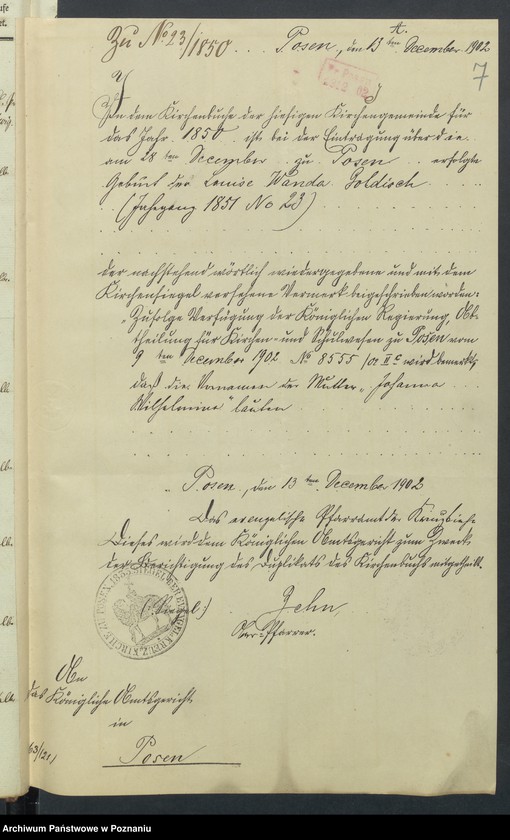 Zu No 23/1850 ... Posen, im 13ten December 1902
7
In dem Kirchenbuche der hiesigen Kirchengemeinde für
das Jahr 1850 ist bei der Eintragung über die
am 28ten December zu Posen erfolgte
Geburt der Louise Wanda Goldisch
(Jahrgang 1851 No 23)
der nachstehend wörtlich wiedergegebene und mit dem
Kirchensiegel versehene Vermerk beigeschrieben worden:
"Zufolge Verfügung der Königlichen Regierung, Ab-
theilung für Kirchen- und Schulwesen zu Posen vom
9ten December 1902 No 8555/02 IIc wird bemerkt,
daß die Vornamen der Mutter "Johanna
Wilhelmine" lauten
Posen, den 13ten December 1902
Das evangelische Pfarramt der Kreuzkirche
Dieses wird dem Königlichen Amtsgericht zum Zweck
der Berichtigung des Duplikats des Kirchenbuchs mitgetheilt.
(Siegel:)
Zehn
Ober-Pfarrer.
An
das Königliche Amtsgericht
in
Posen
Archiwum Państwowe w Poznaniu